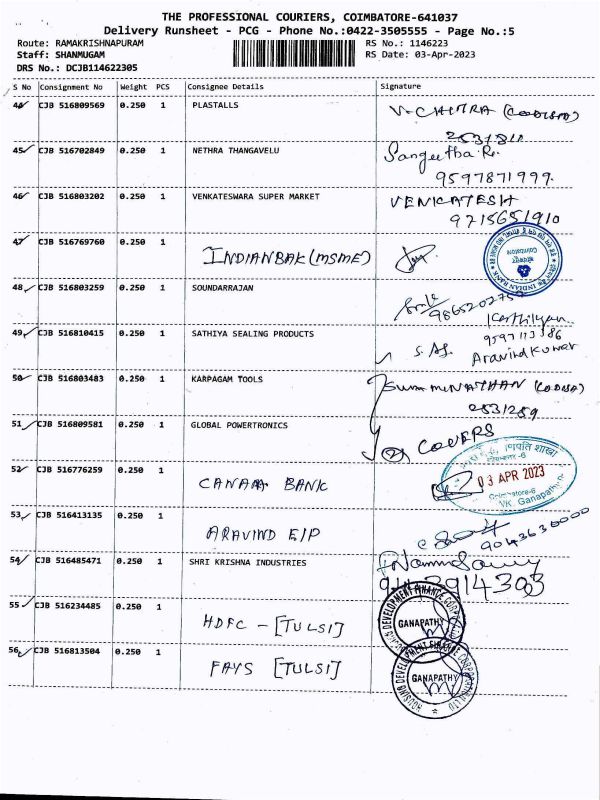 THE PROFESSIONAL COURIERS, COIMBATORE-641037
Delivery Runsheet - PCG - Phone No.:0422-3505555 - Page No.:5
Route: RAMAKRISHNAPURAM
RS No.: 1146223
Staff: SHANMUGAM
RS Date: 03-Apr-2023
DRS No.: DCJB114622305
S No Consignment No Weight PCS Consignee Details Signature
44 CJB 516809569 0.250 1 PLASTALLS V. CHITRA (CODISSIA)
45 CJB 516702849 0.250 1 NETHRA THANGAVELU Sangeetha.R.
9597871999
46 CJB 516803202 0.250 1 VENKATESWARA SUPER MARKET VENKATESH
9715651910
47 CJB 516769760 0.250 1
INDIANBAK (MSME)
INDIAN BANK
Coimbatore
48 CJB 516803259 0.250 1 SOUNDARRAJAN
49 CJB 516810415 0.250 1 SATHIYA SEALING PRODUCTS
Aravind Kumar
50 CJB 516803483 0.250 1 KARPAGAM TOOLS
2531289
51 CJB 516809581 0.250 1 GLOBAL POWERTRONICS
(2) COVERS
52 CJB 516776259 0.250 1
CANARA BANK
03 APR 2023
Coimbatore-6
53 CJB 516413135 0.250 1
ARAVIND EIP
9043630000
54 CJB 516485471 0.250 1 SHRI KRISHNA INDUSTRIES
55 CJB 516234485 0.250 1
HDFC - [TULSI]
GANAPATHY
56 CJB 516813504 0.250 1
FAYS [TULSI]
HOUSING DEVELOPMENT FINANCE CORPORATION LTD
GANAPATHY